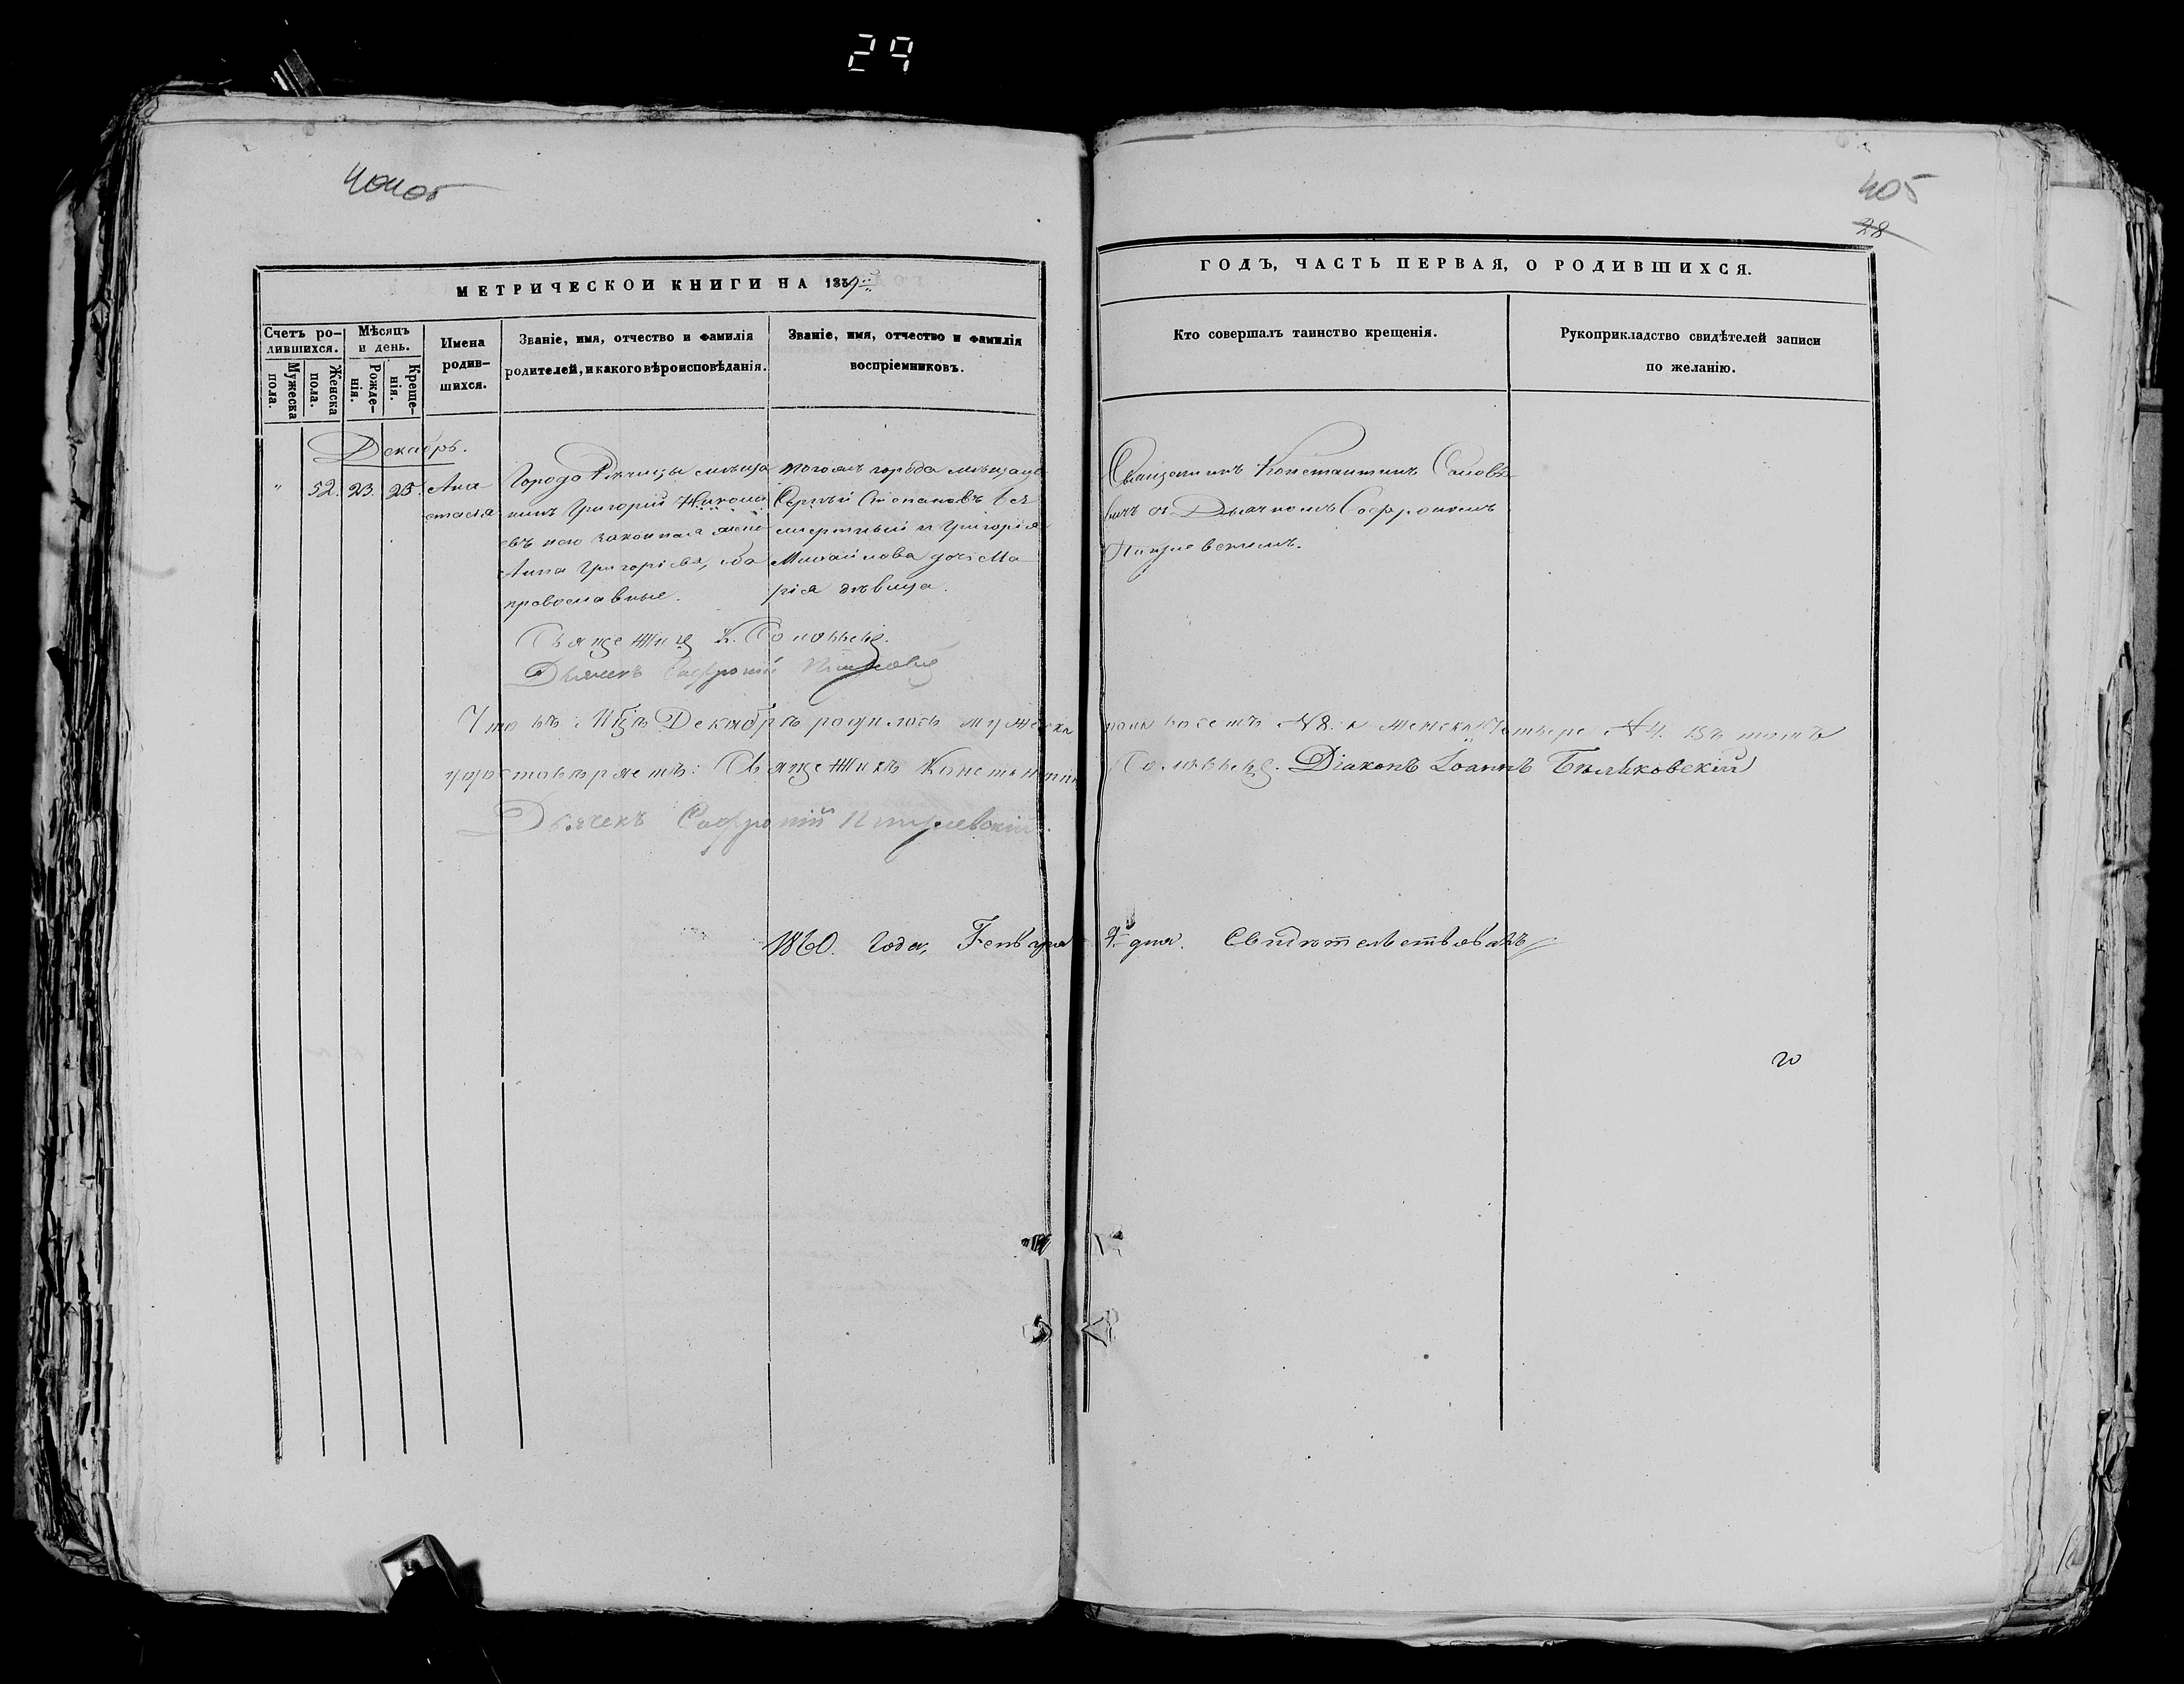 29
404об
405
28
МЕТРИЧЕСКОЙ КНИГИ НА 1859
ГОДЪ, ЧАСТЬ ПЕРВАЯ, О РОДИВШИХСЯ.
Счетъ ро-
дившихся.
Мужеска
пола.
Женска
пола.
Мѣсяцъ
и день.
Рожде-
нія.
Креще-
нія.
Имена
родив-
шихся.
Званіе, имя, отчество и фамилія
родителей, и какого вѣроисповѣданія.
Званіе, имя, отчество и фамилія
воспріемниковъ.
Кто совершалъ таинство крещенія.
Рукоприкладство свидѣтелей записи
по желанію.
Декабрь.
" 52. 23. 25. Ана
стасія
Города Рѣчицы мѣща
нинъ Григорій Никола
евъ жена
Анна Григорьева, оба
православные.
города мѣщане
Сергѣй Степановъ Без
смертный и Григорія
Михайлова дочь Ма
рія дѣвица.
Священникъ Константинъ Соловье
вичъ съ Дьячкомъ Софрониемъ
Священникъ К. Соловьевъ
Дьячекъ Софроній
Что въ Мцѣ Декабрѣ родилось мужеска пола восемь №8. а женска Четыре №4. въ томъ
удостовѣряетъ: Священникъ Константинъ Діаконъ Іоаннъ Бѣльковскій
Дьячекъ Софроній
1860. года, Генваря 9 дня. Свидѣтельствовалъ